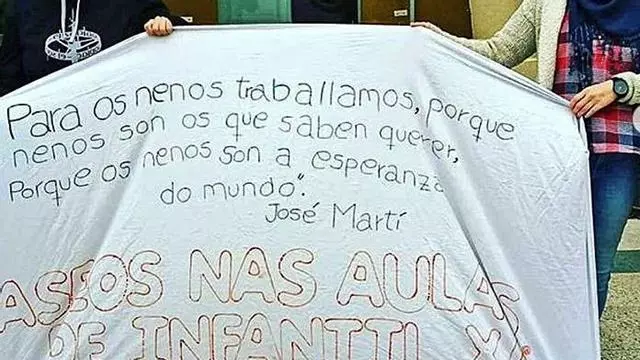 Para os nenos traballamos, porque
nenos son os que saben querer,
Porque os nenos son a esperanza
do mundo".
José Martí
ASEOS NAS AULAS
DE INFANTIL